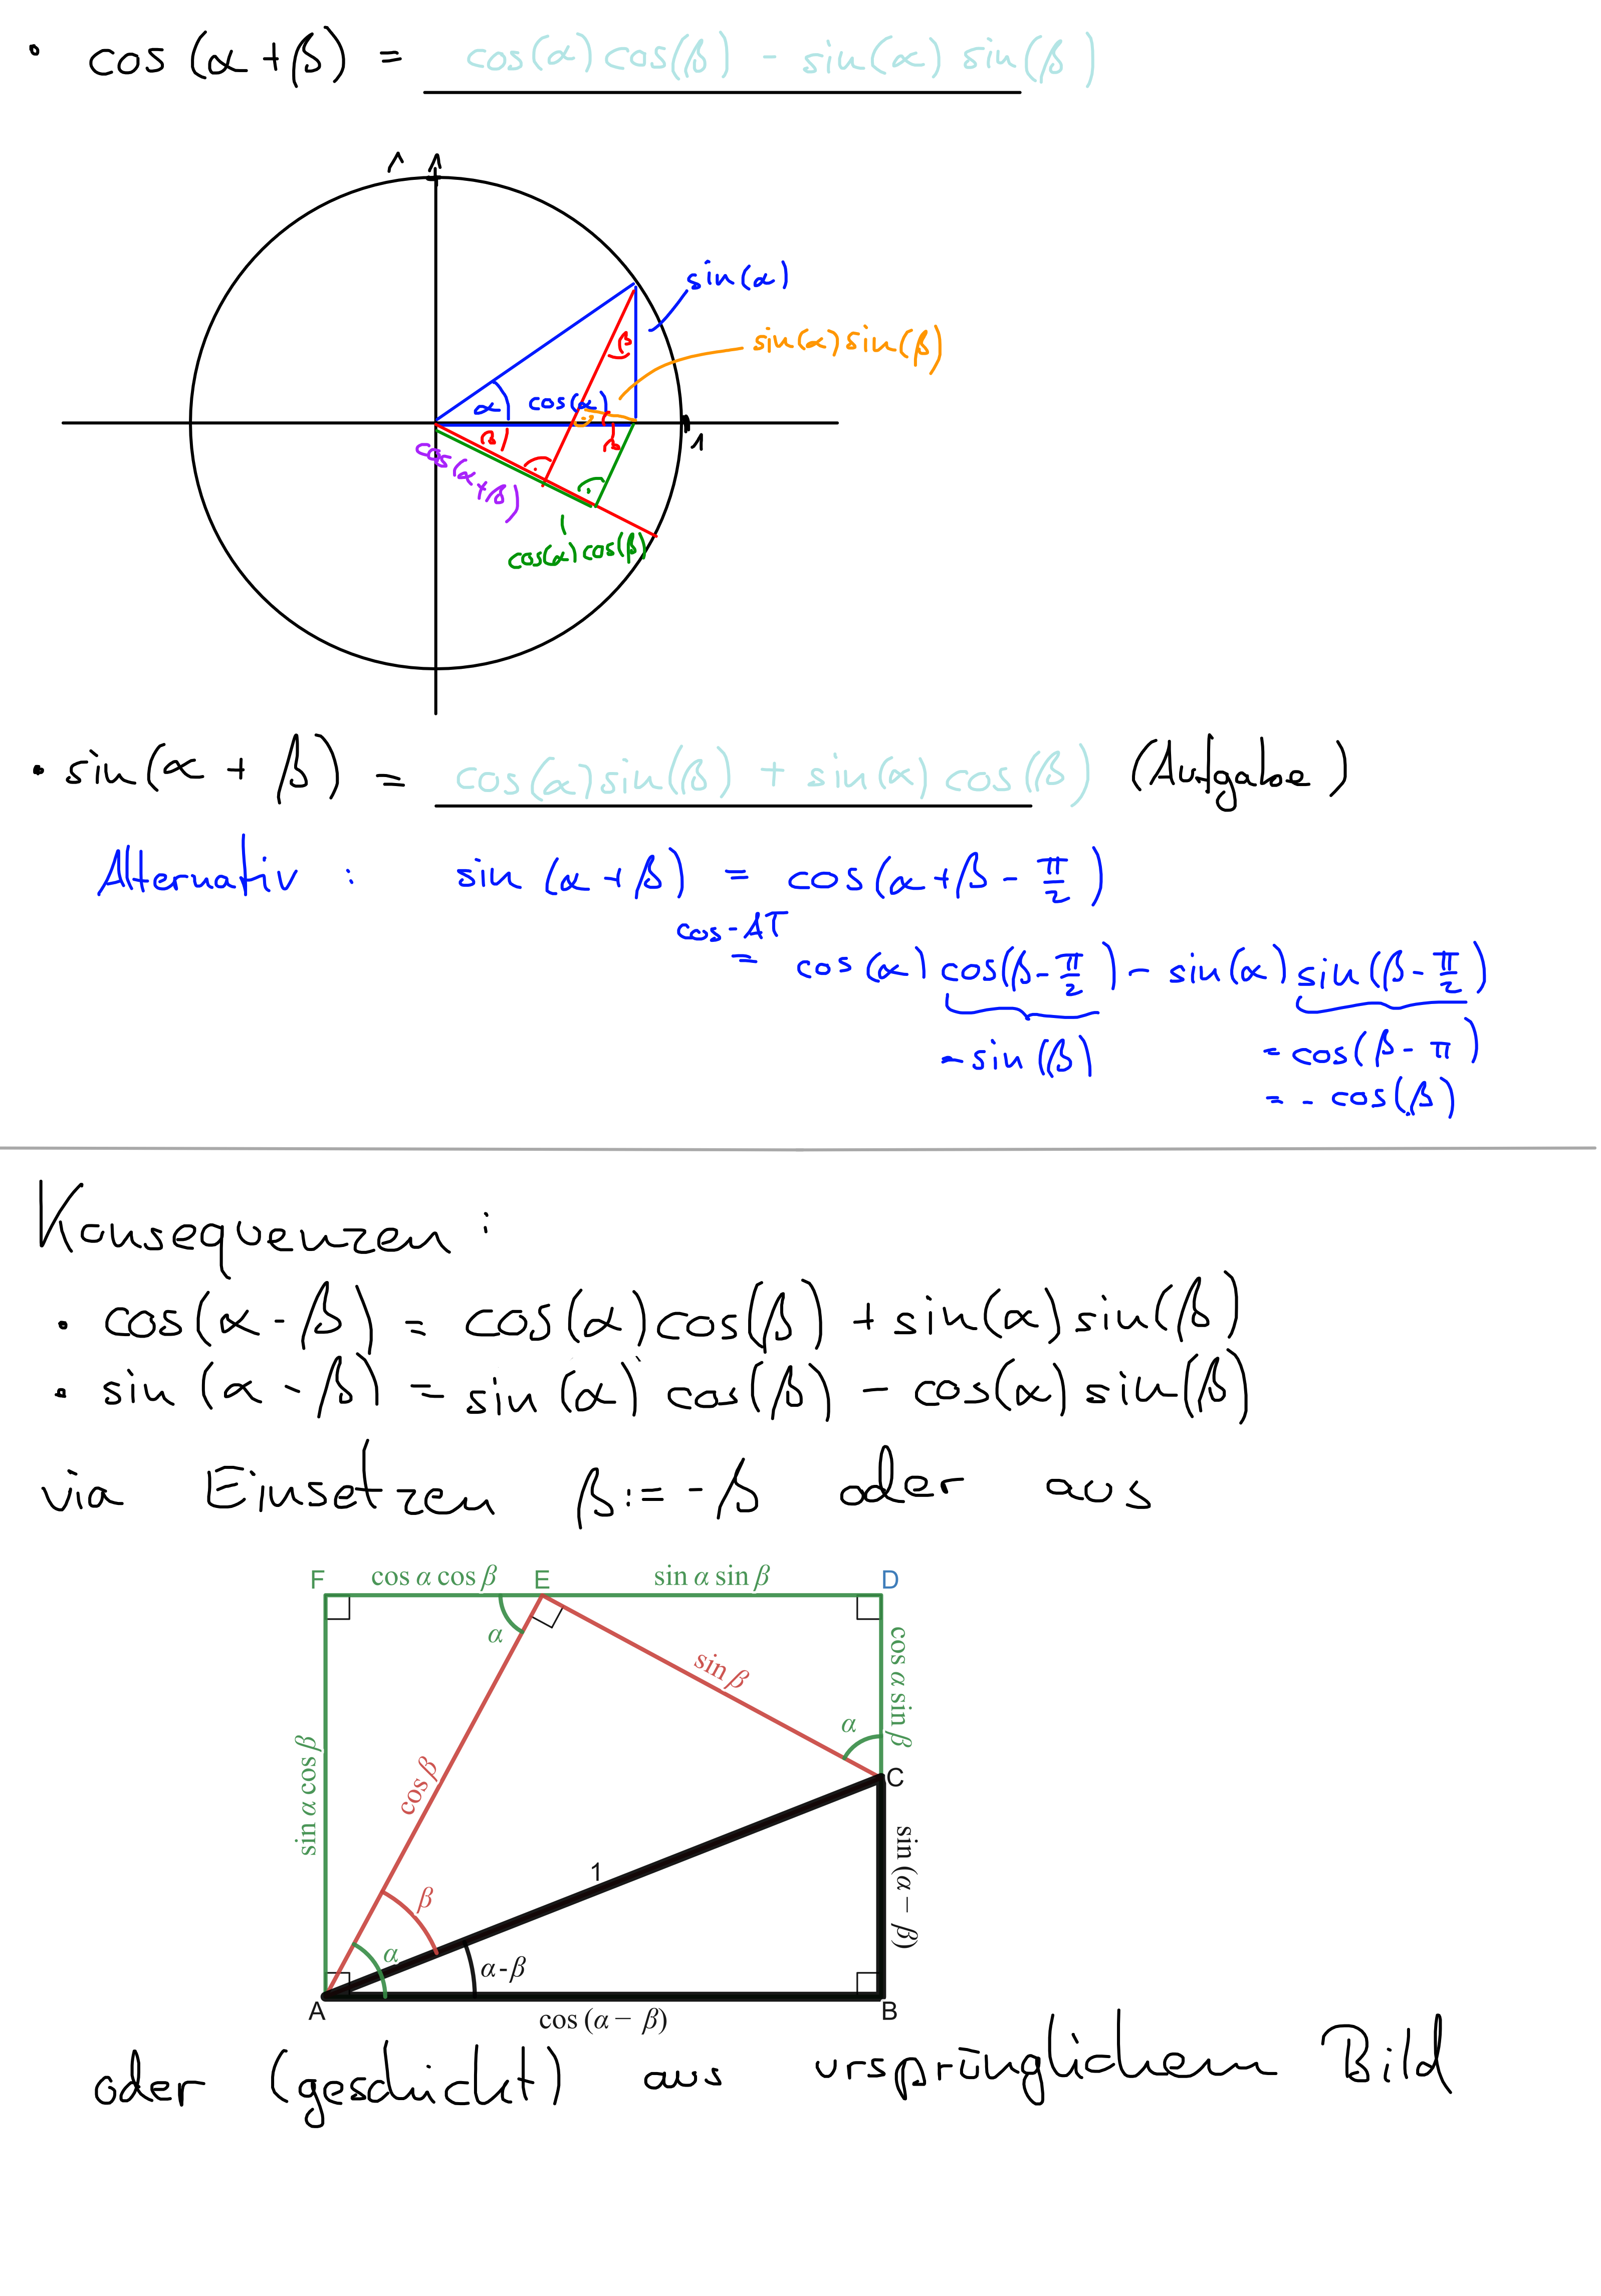 • cos (α+β) = cos(α) cos(β) - sin(α) sin(β)
1
sin(α)
sin(α) sin(β)
β
α
cos(α)
β
β
1
cos(α+β)
cos(α) cos(β)
• sin(α + β) = cos(α) sin(β) + sin(α) cos(β) (Aufgabe)
Alternativ : sin (α+β) = cos(α+β - π/2)
cos-AT
= cos(α) cos(β-π/2) - sin(α) sin(β-π/2)
= sin(β) = cos(β-π)
= - cos(β)
Konsequenzen :
• cos(α-β) = cos(α) cos(β) + sin(α) sin(β)
• sin (α-β) = sin(α) cos(β) - cos(α) sin(β)
via Einsetzen β := -β oder aus
F cos α cos β E sin α sin β D
α
cos α sin β
sin β
α
sin α cos β
cos β
C
1
sin (α − β)
β
α
α-β
A B
cos (α − β)
oder (geschickt) aus ursprünglichem Bild